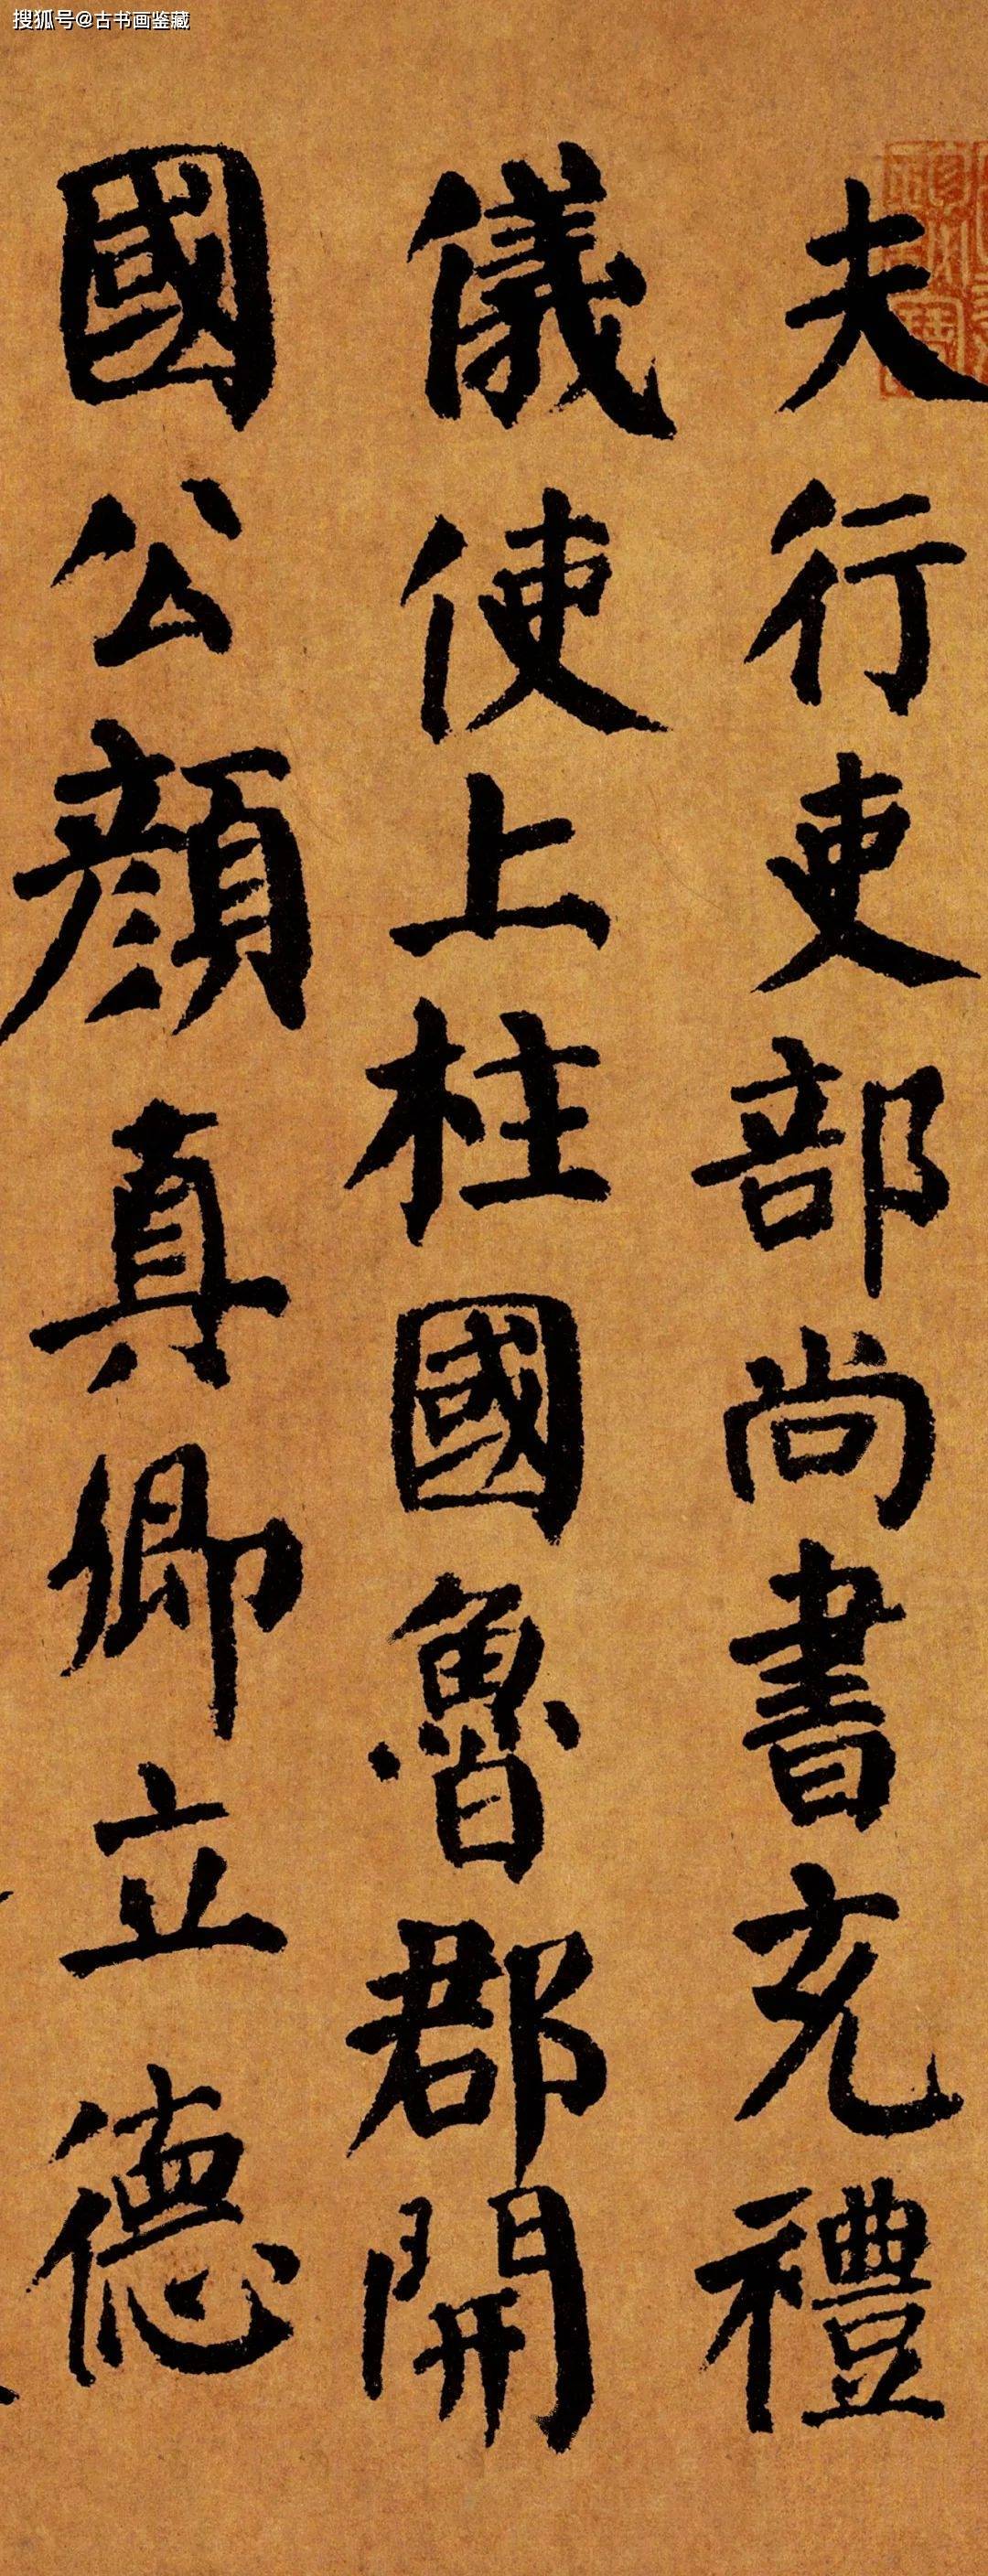 搜狐号@古书画鉴藏
夫行吏部尚書充禮
儀使上柱國魯郡開
國公顏真卿立德